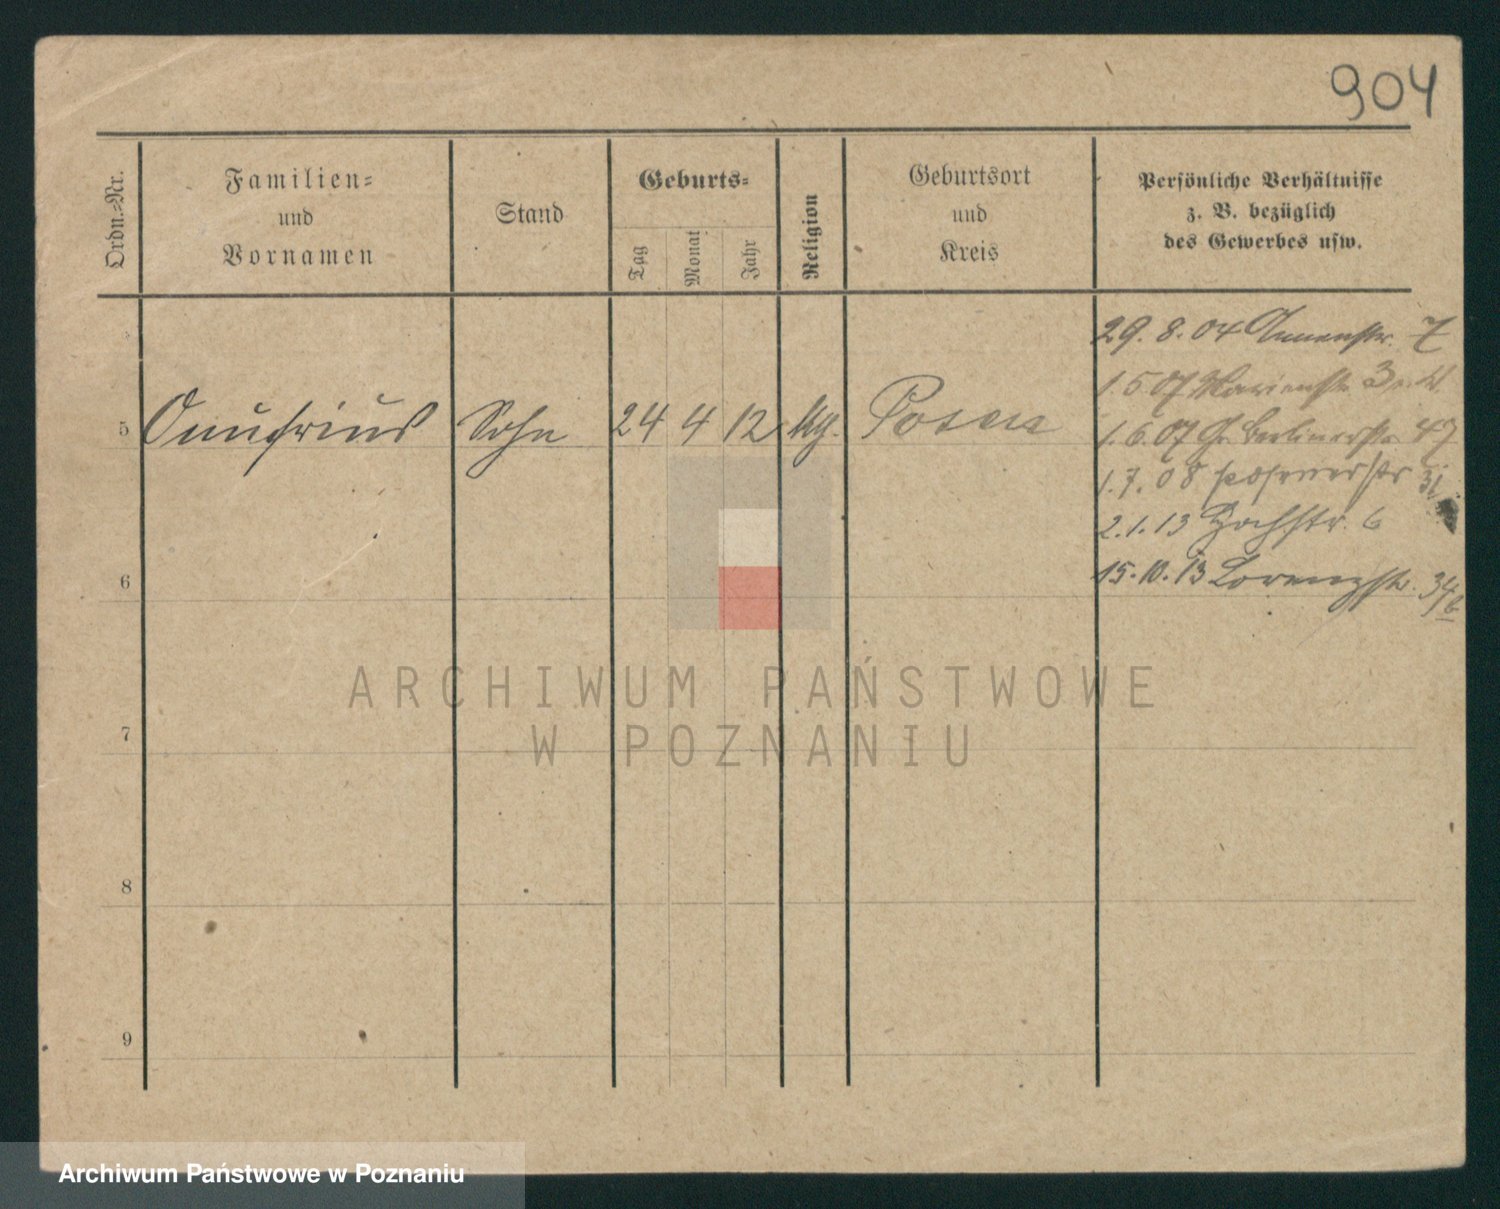 904
Ordn.-Nr.
Familien-
und
Vornamen
Stand
Geburts-
Tag
Monat
Jahr
Religion
Geburtsort
und
Kreis
Persönliche Verhältnisse
z. B. bezüglich
des Gewerbes usw.
29. 8. 04 Annenstr. 7
1. 5 07 Marienstr 3
1. 6. 07 Gr Berlinerstr 47
1. 7. 08 posenerstr 31
2. 1. 13 Hochstr. 6
15. 10. 13 Lorenzstr. 34/6
5 Onufrius Sohn 24 4 12 Posen
6
7
8
9
ARCHIWUM PAŃSTWOWE
W POZNANIU
Archiwum Państwowe w Poznaniu